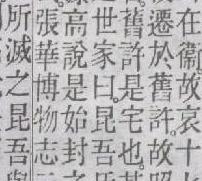 在衞故哀十
遷於舊許。故昭
舊許是宅也。
世家曰。昆吾
高說是始封
張華博物志
所滅之昆吾